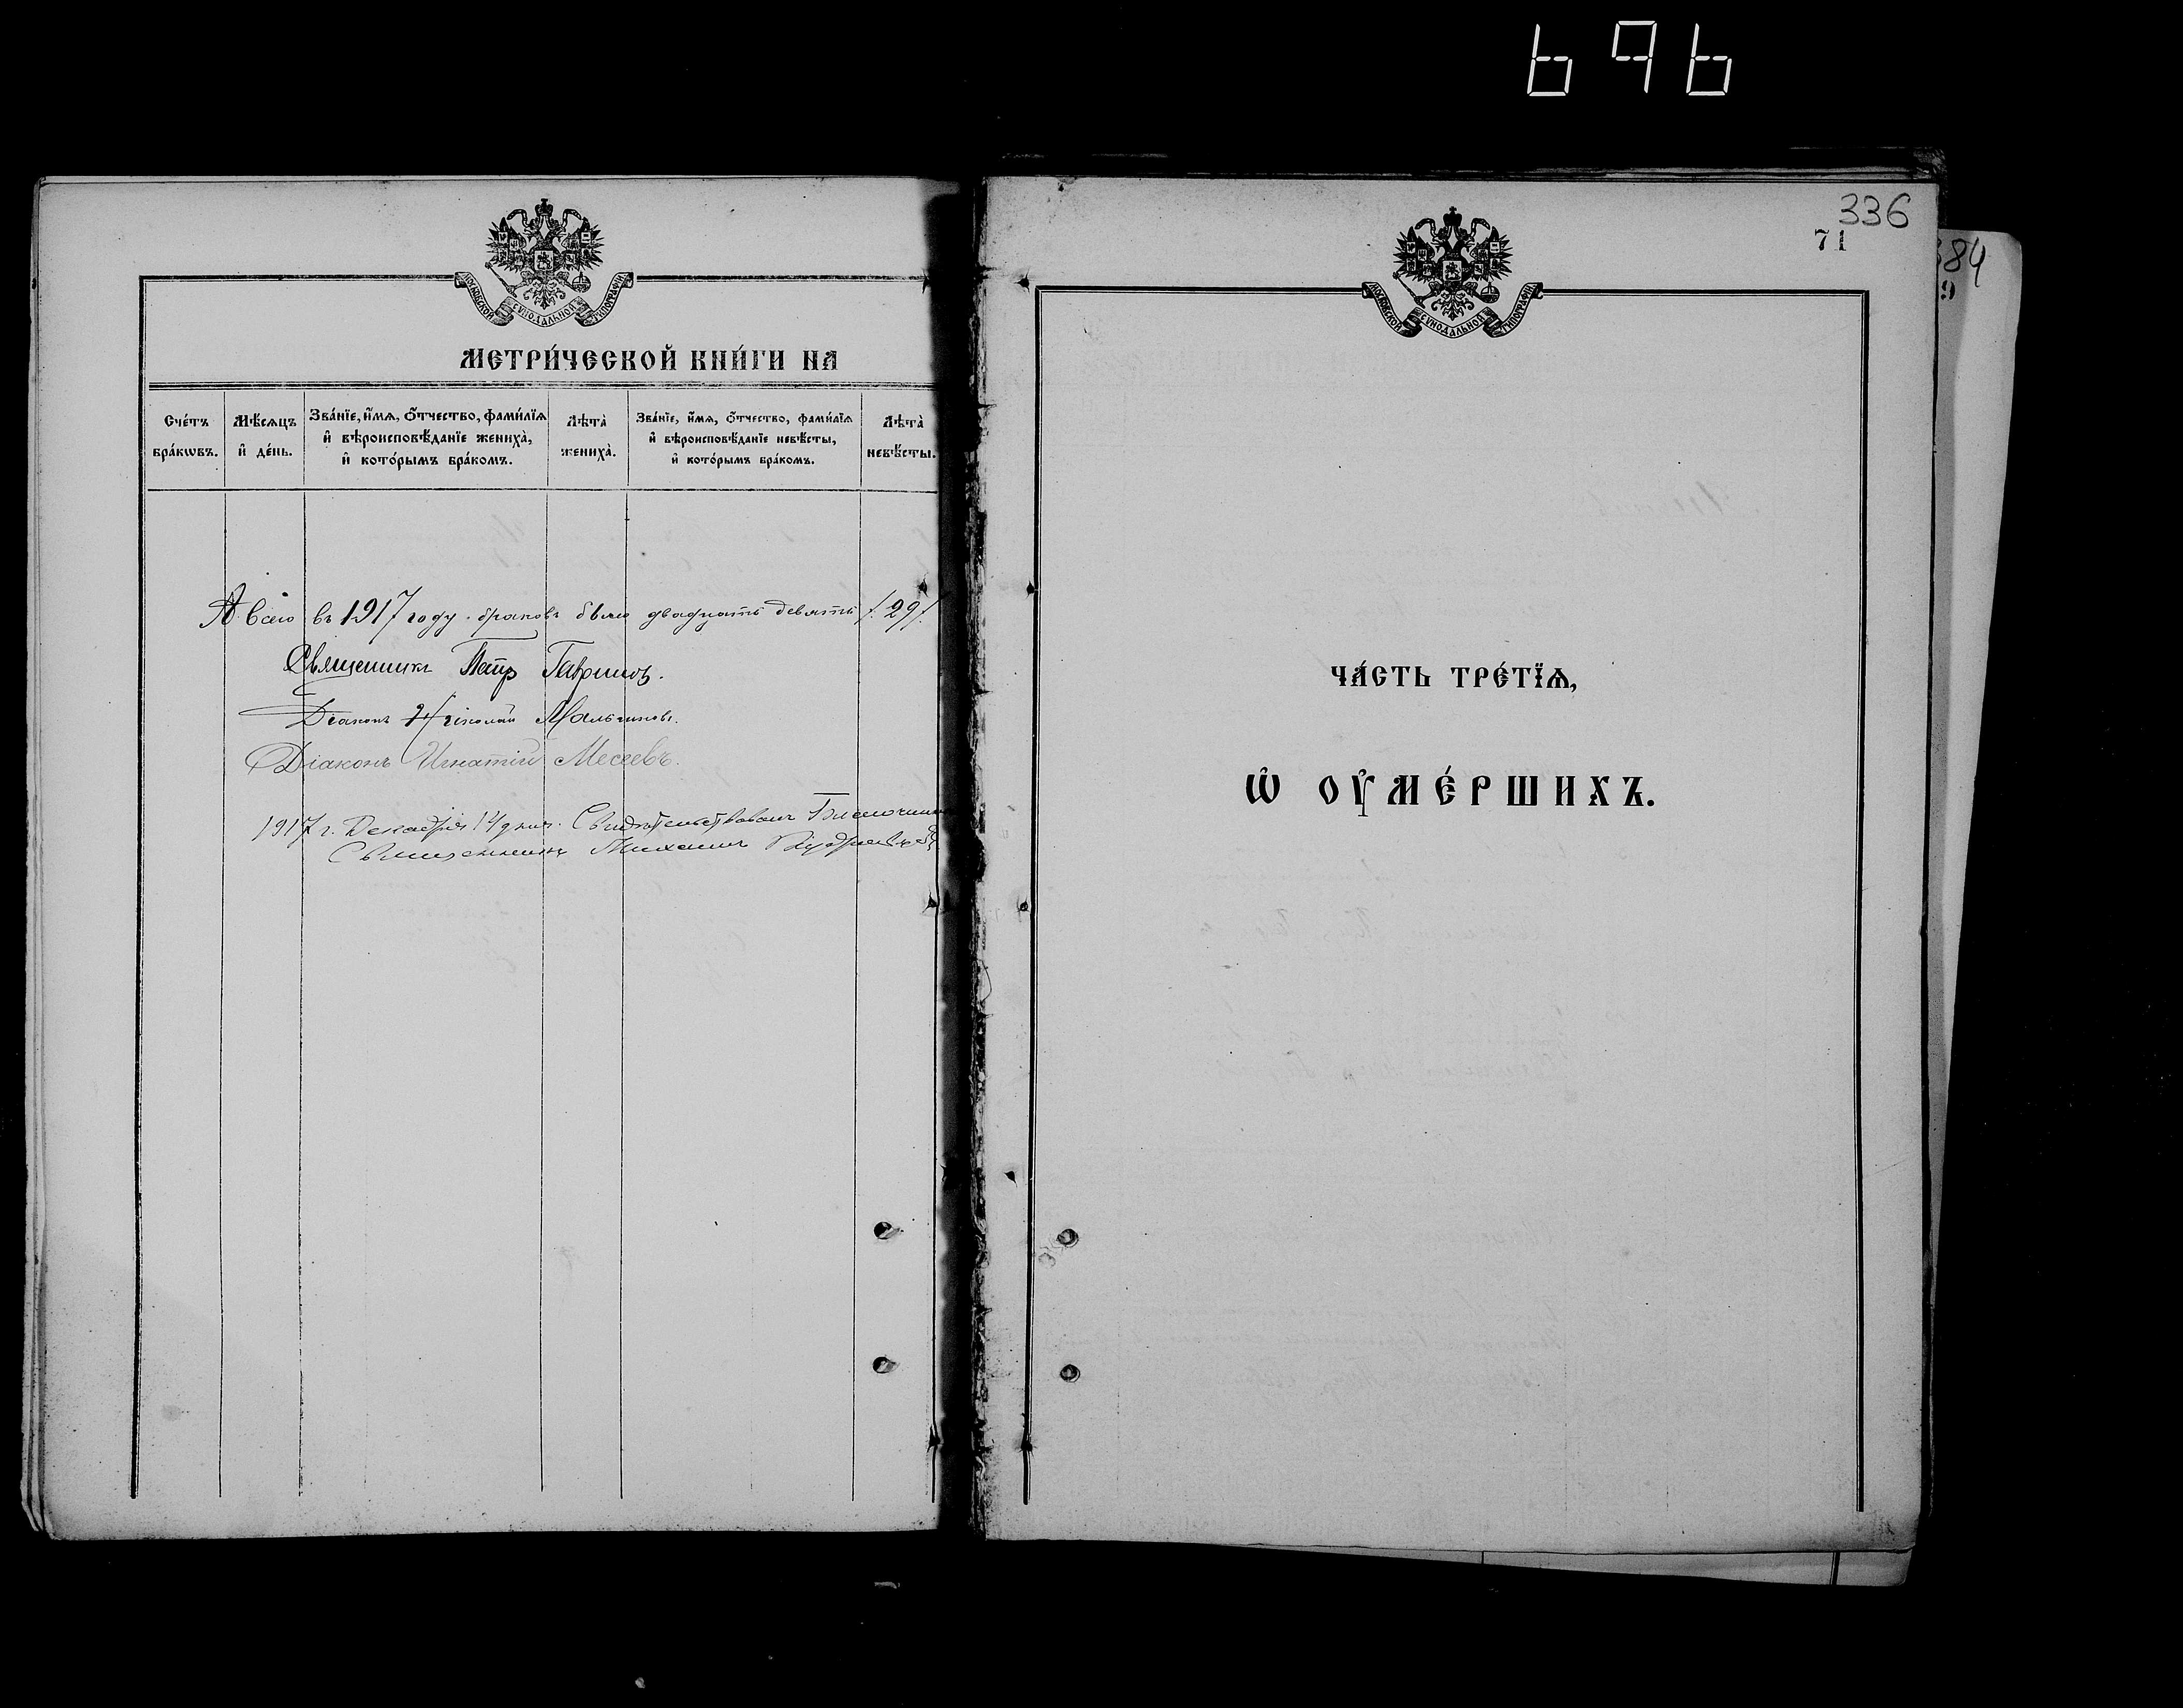 696
МОСКОВСКОЙ СѴНОДАЛЬНОЙ ТИПОГРАФІИ
МЕТРИ́ЧЕСКОЙ КНИ́ГИ НА
Сче́тъ бра́кѡвъ.
Мѣ́сяцъ и҆ де́нь.
Зва́нїе, и҆́мѧ, ѻ҆́тчество, фами́лїѧ
и҆ вѣроисповѣ́данїе женихà,
и҆ кото́рымъ бра́комъ.
Лѣтà женихà.
Зва́нїе, и҆́мѧ, ѻ҆́тчество, фами́лїѧ
и҆ вѣроисповѣ́данїе невѣ́сты,
и҆ кото́рымъ бра́комъ.
Лѣтà невѣ́сты.
А всего въ 1917 году браковъ было двадцать девять /29/.
Священникъ Петр Гаврилов.
Діаконъ Николай Мальчиковъ.
Діаконъ Игнатій Месеевъ.
1917 г. Декабря 14 дня. Свидѣтельствовалъ
Священникъ Михаилъ Кудрявцев
336
71
384
9
МОСКОВСКОЙ СѴНОДАЛЬНОЙ ТИПОГРАФІИ
ЧА́СТЬ ТРЕ́ТЇѦ,
Ѡ҆ ОУ҆МЕ́РШИХЪ.